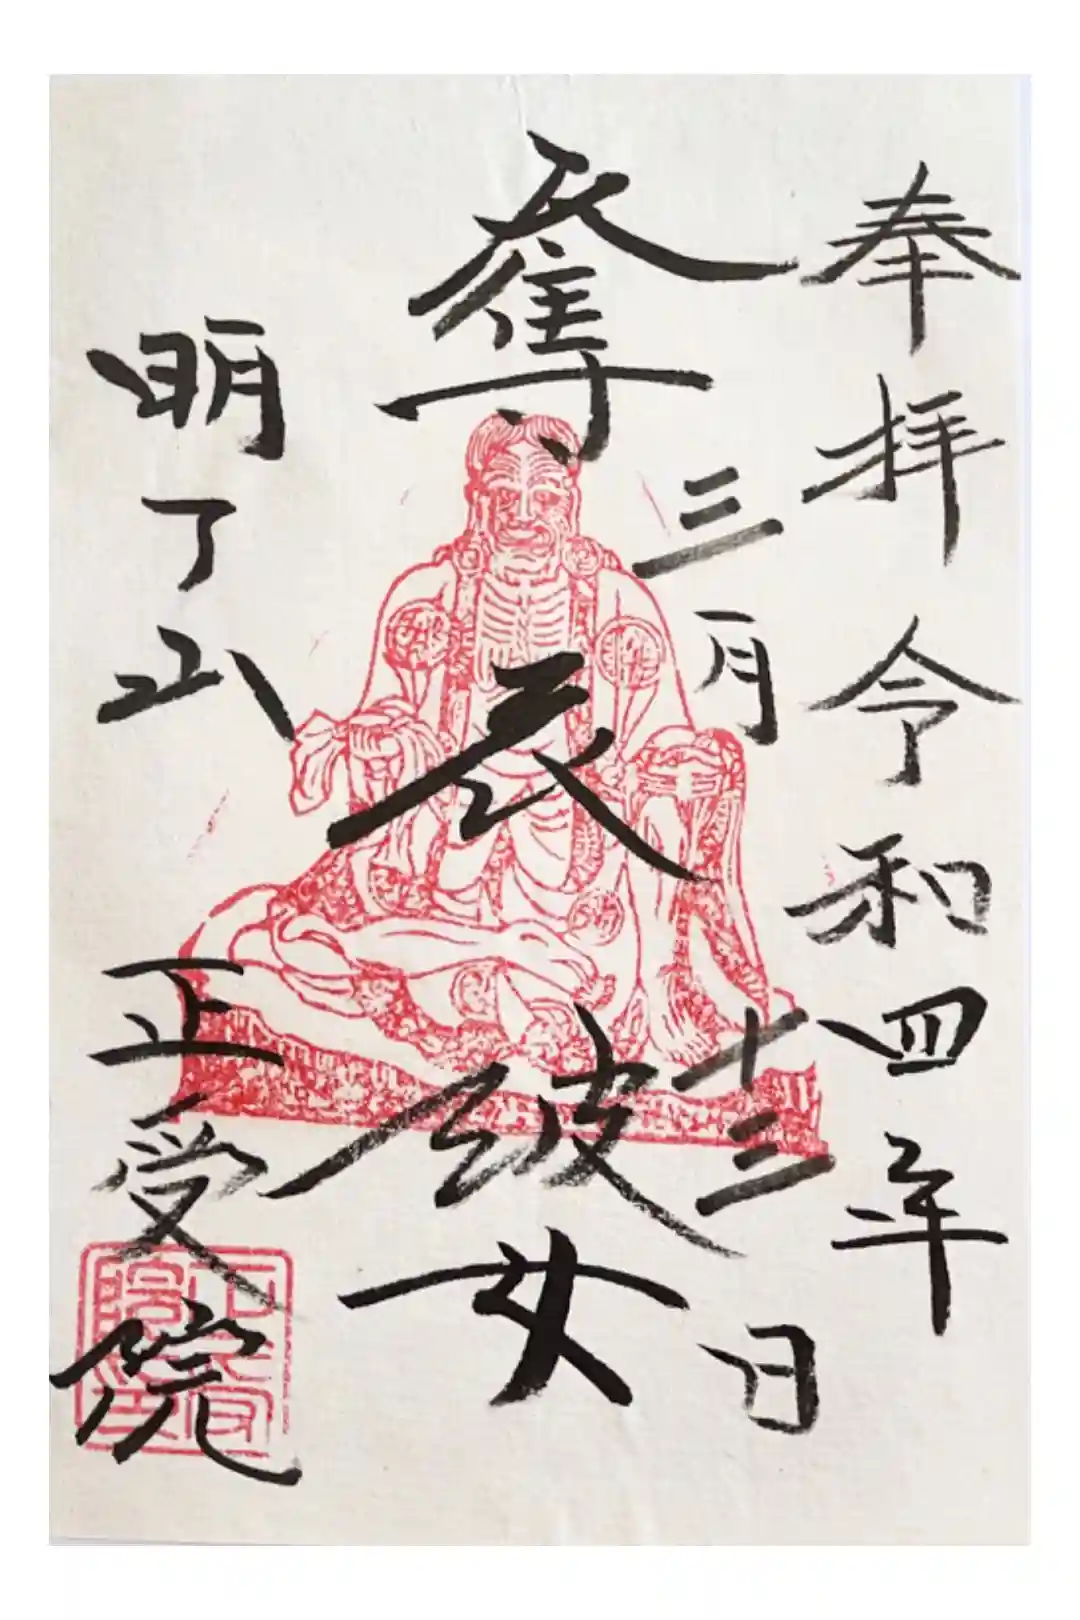 奉拝 令和四年
三月十三日
奪衣婆
明了山 正受院
正受院印